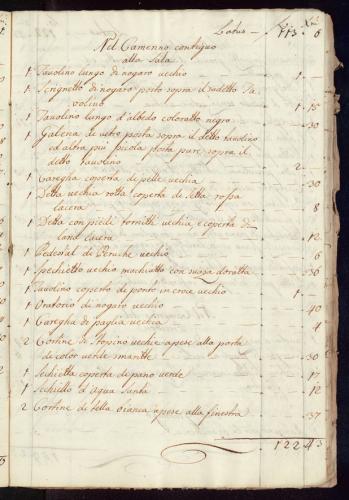 Latus — f 113 Xri 6
Nel Camerino contiguo
alla Sala
1 Tavolino lungo di nogaro vecchio — 1 —
1 Scrignetto di nogaro posto sopra il sudetto Ta
volino — 1 — 15
1 Tavolino lungo d'albedo coloratto negro — 30
1 Galena di vetro posta sopra il detto tavolino
ed altra più picola posta pure sopra il
detto tavolino — 2 —
1 Caregha coperta di pelle vechia — 30
1 Detta vechia rotta coperta di setta rossa
lacera — 8
1 Detta con piedi tornitti vechia, e coperta di
lana lacera — 12
1 Pedestal di Peruche vechio — 6
1 Spechietto vechio machiatto con suaza doratta — 36
1 Tavolino coperto di ponto in croce vechio — 1 —
1 Oratorio di nogaro vechio — 40
1 Caregha di paglia vechia — 4
2 Cortine di Stopino vechie apese alla porta
di color verde smarite — 30
1 Sechietta coperta di pano verde — 17
1 Sechiello d'aqua Santa — 12
2 Cortine di tella bianca apese alla finestra — 37
122 4 3